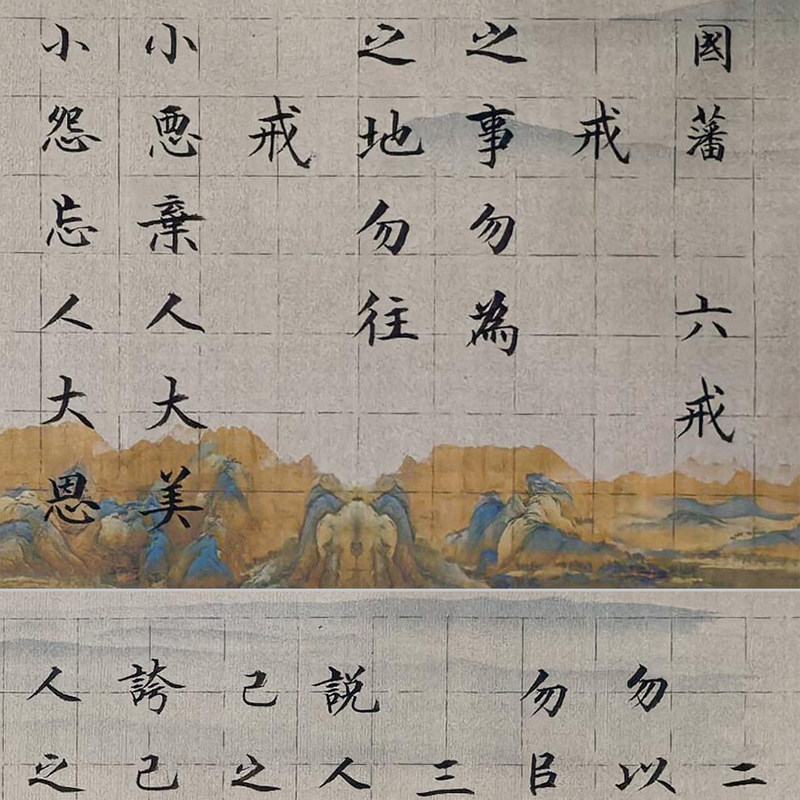 國藩 六戒
戒
之事勿為
之地勿往
戒
小惡棄人大美
小怨忘人大恩
二
勿以
勿㠯
三
説人
己之
誇己
人之